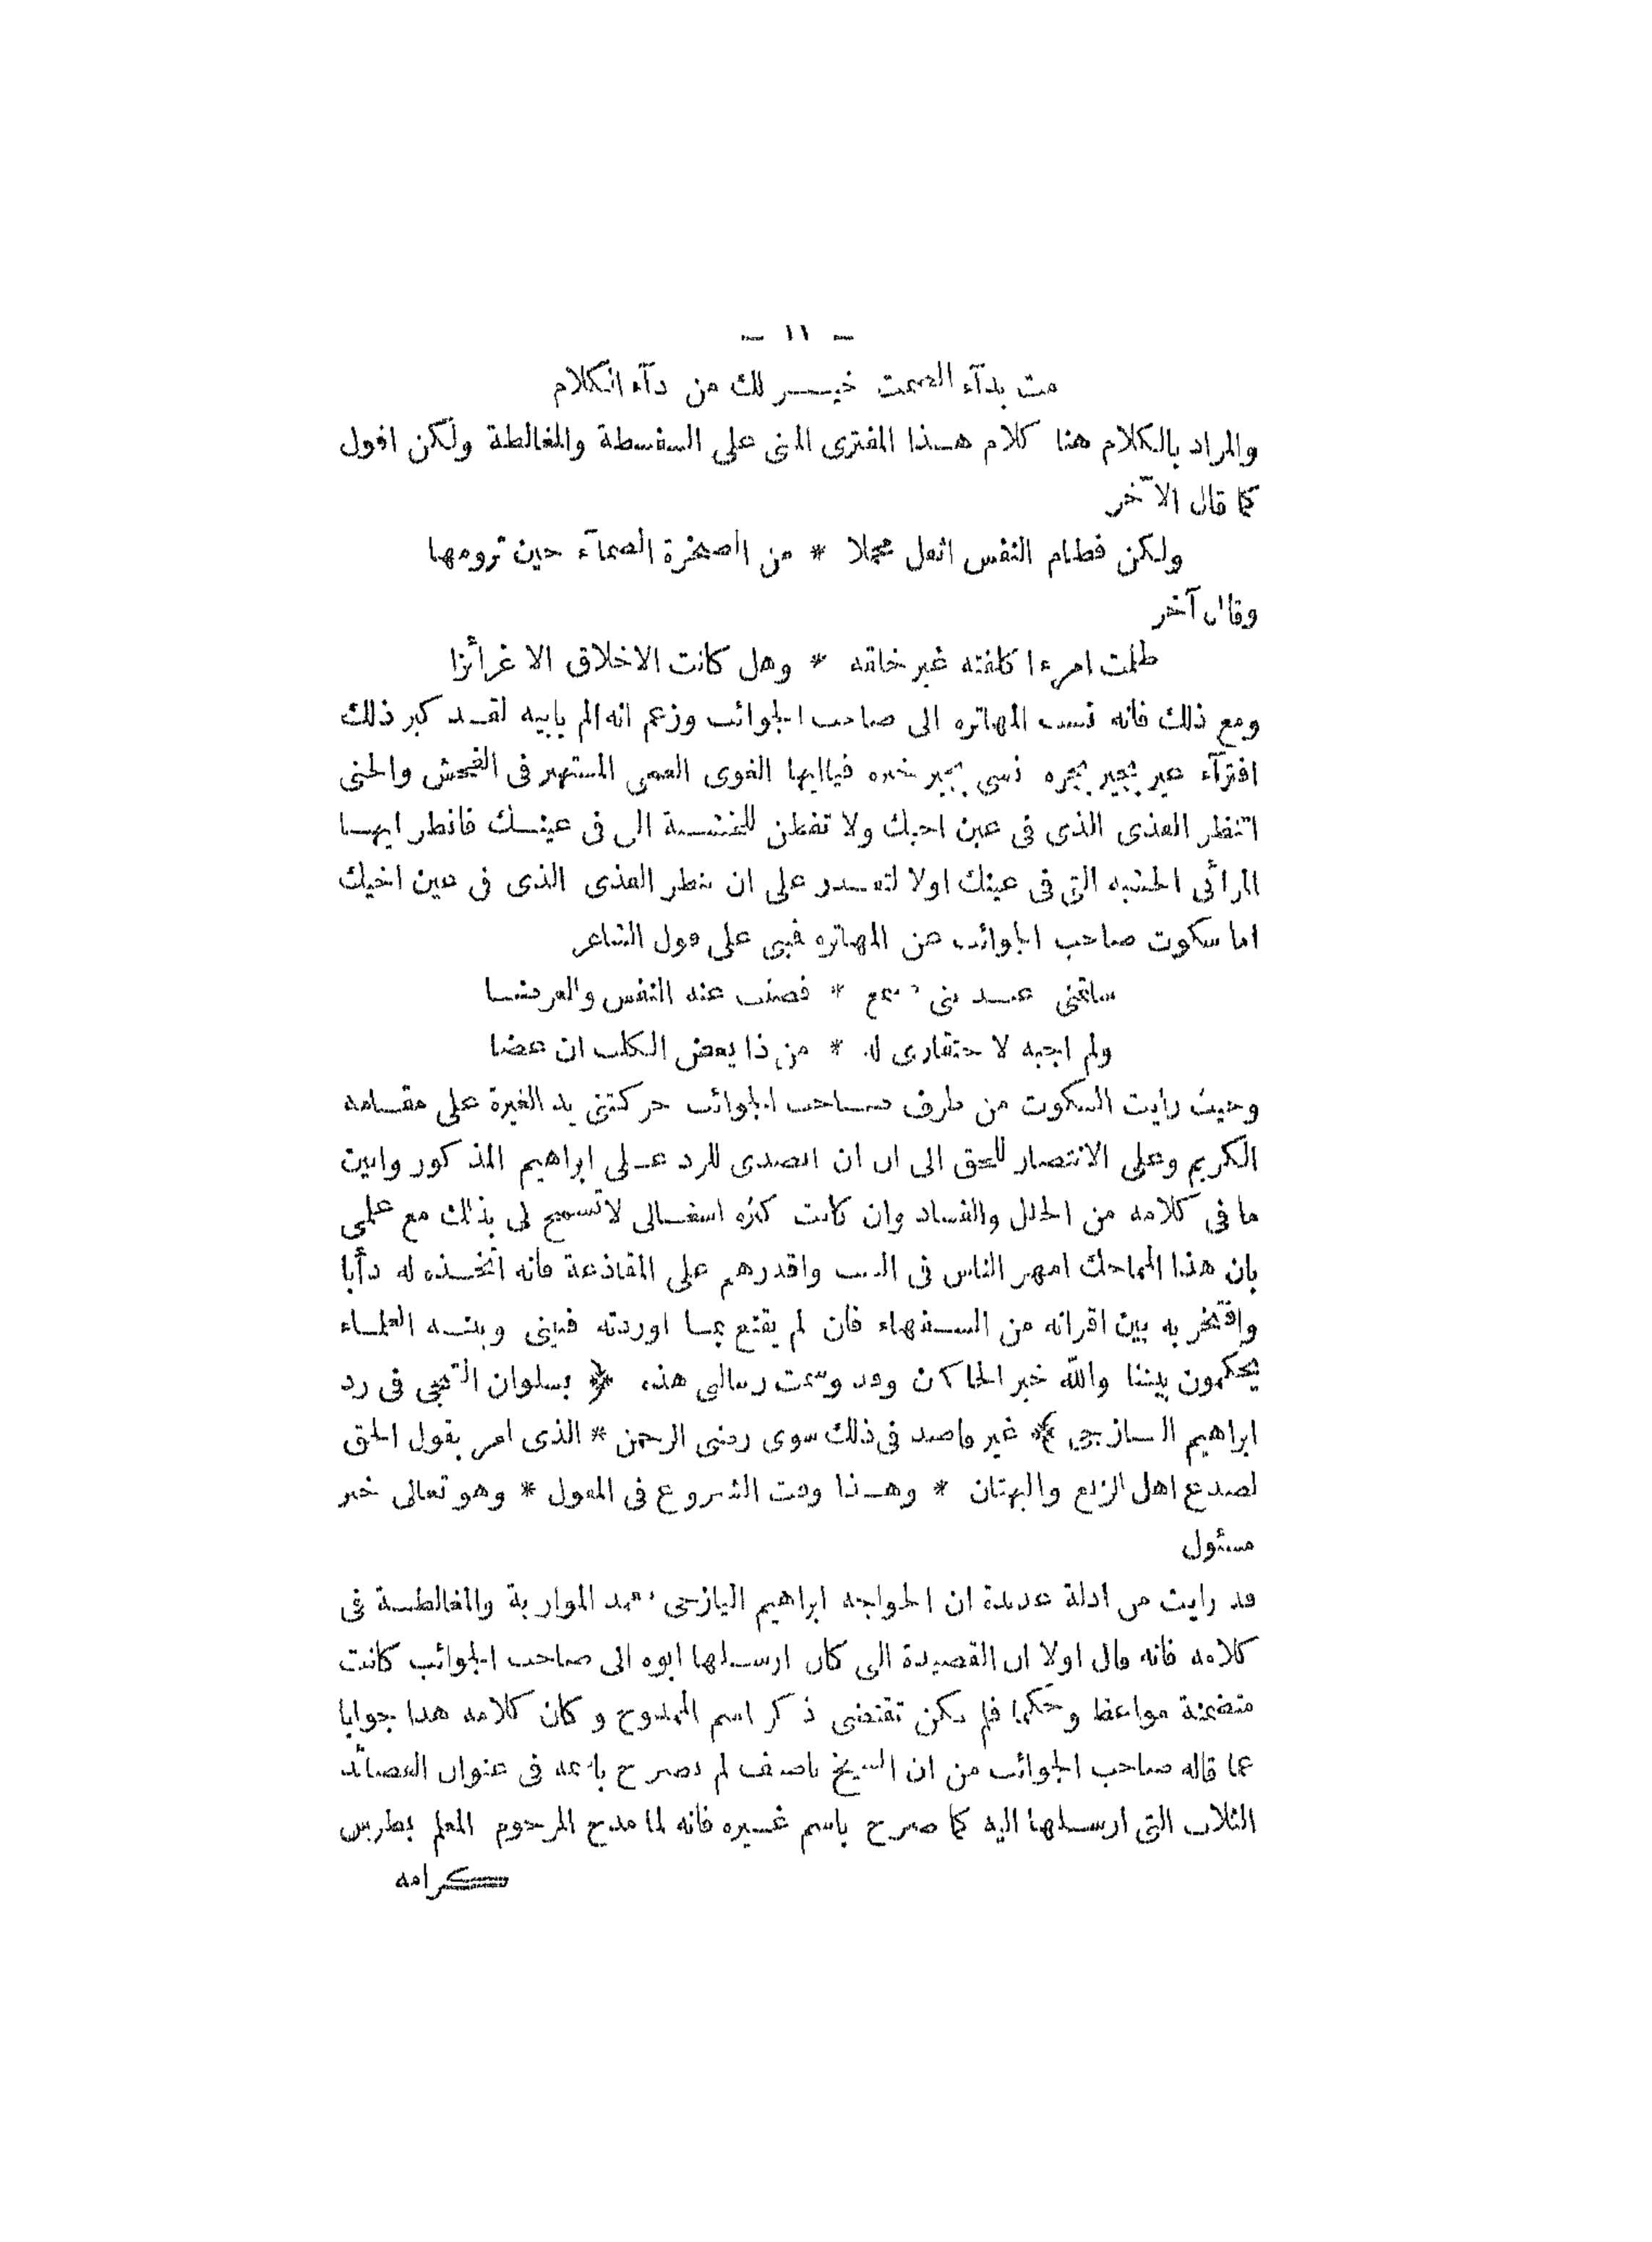 – ١١ –
مت بدآء الصمت خيـــر لك من دآء الكلام
والمراد بالكلام هنا كلام هـذا المفترى المبنى على السفسطة والمغالطة ولكن اقول
كما قال الآخر
ولكن فطام النفس اثقل محملا * من الصخرة الصمآء حين ترومها
وقال آخر
ظلمت امرءا كلفته غير خلقه * وهل كانت الاخلاق الا غرائزا
ومع ذلك فانه نسب المهاتره الى صاحب الجوائب وزعم انه الم بابيه لقـد كبر ذلك
افترآء عير بجير بجره نسى بجير خبره فياايها الغوى العمى المستهتر فى الفحش والخنى
اتنظر القذى الذى فى عين اخيك ولا تفطن للخشبـة التى فى عينـك فانظر ايهـا
المرائى الخشبه التى فى عينك اولا لتقـدر على ان تنظر القذى الذى فى عين اخيك
اما سكوت صاحب الجوائب عن المهاتره فبنى على قول الشاعر
سابنى عبـد بنى مسمع * فصنت عنه النفس والعرضـا
ولم اجبه لاحتقارى له * من ذا يعض الكلب ان عضا
وحيث رايت السكوت من طرف صـاحب الجوائب حركتنى يد الغيرة على مقـامه
الكريم وعلى الانتصار للحق الى ان اتصدى للرد عـلى ابراهيم المذكور وابين
ما فى كلامه من الخلل والفساد وان كانت كثرة اشغـالى لاتسمح لى بذلك مع علمى
بان هذا المماحك امهر الناس فى السب واقدرهم على المقاذعة فانه اتخـذه له دأبا
وافتخر به بين اقرانه من السـفهاء فان لم يقنع بمـا اوردته فبينى وبينـه العلمـاء
يحكمون بيننا والله خير الحاكمين وقد وسمت رسالتى هذه ﴿ بسلوان الشجى فى رد
ابراهيم اليـازجى ﴾ غير قاصد فى ذلك سوى رضى الرحمن * الذى امر بقول الحق
لصدع اهل الزيغ والبهتان * وهـذا وقت الشروع فى المقول * وهو تعالى خير
مسئول
قد رايت من ادلة عديدة ان الخواجه ابراهيم اليازجى تعمد المواربة والمغالطـة فى
كلامه فانه قال اولا ان القصيدة التى كان ارسـلها ابوه الى صاحب الجوائب كانت
متضمنة مواعظ وحكما فلم تكن تقتضى ذكر اسم الممدوح وكان كلامه هذا جوابا
عما قاله صاحب الجوائب من ان الشيخ ناصيف لم يصرح باسمه فى عنوان القصائد
الثلاث التى ارسـلها اليه كما صرح باسم غـيره فانه لما مدح المرحوم المعلم بطرس
كرامه